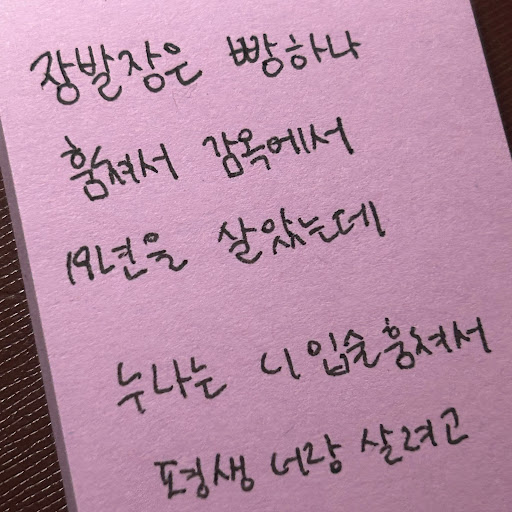 장발장은 빵하나
훔쳐서 감옥에서
19년을 살았는데
누나는 니 입술훔쳐서
평생 너랑 살려고